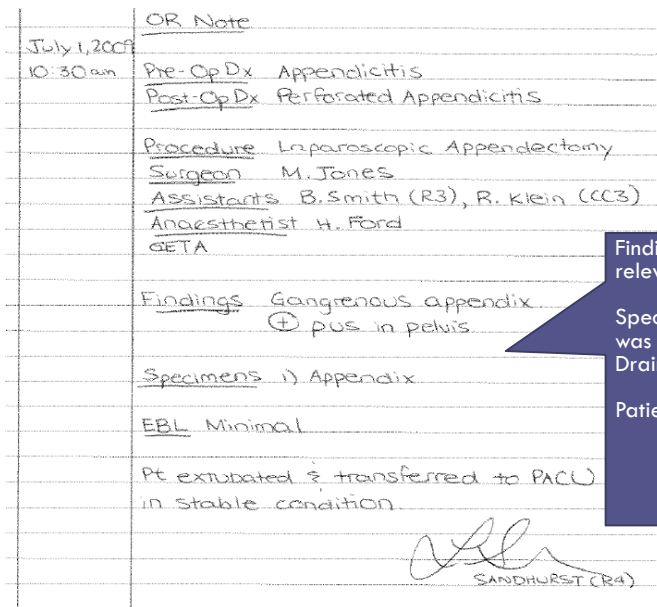 OR Note
July 1, 2009
10:30am Pre-Op Dx Appendicitis
Post-Op Dx Perforated Appendicitis
Procedure Laparoscopic Appendectomy
Surgeon M. Jones
Assistants B. Smith (R3), R. Klein (CC3)
Anaesthetist H. Ford
GETA
Findings Gangrenous appendix
⊕ pus in pelvis
Specimens i) Appendix
EBL Minimal
Pt extubated & transferred to PACU
in stable condition
SANDHURST (R4)
Findi
relev
Spec
was
Drai
Patie